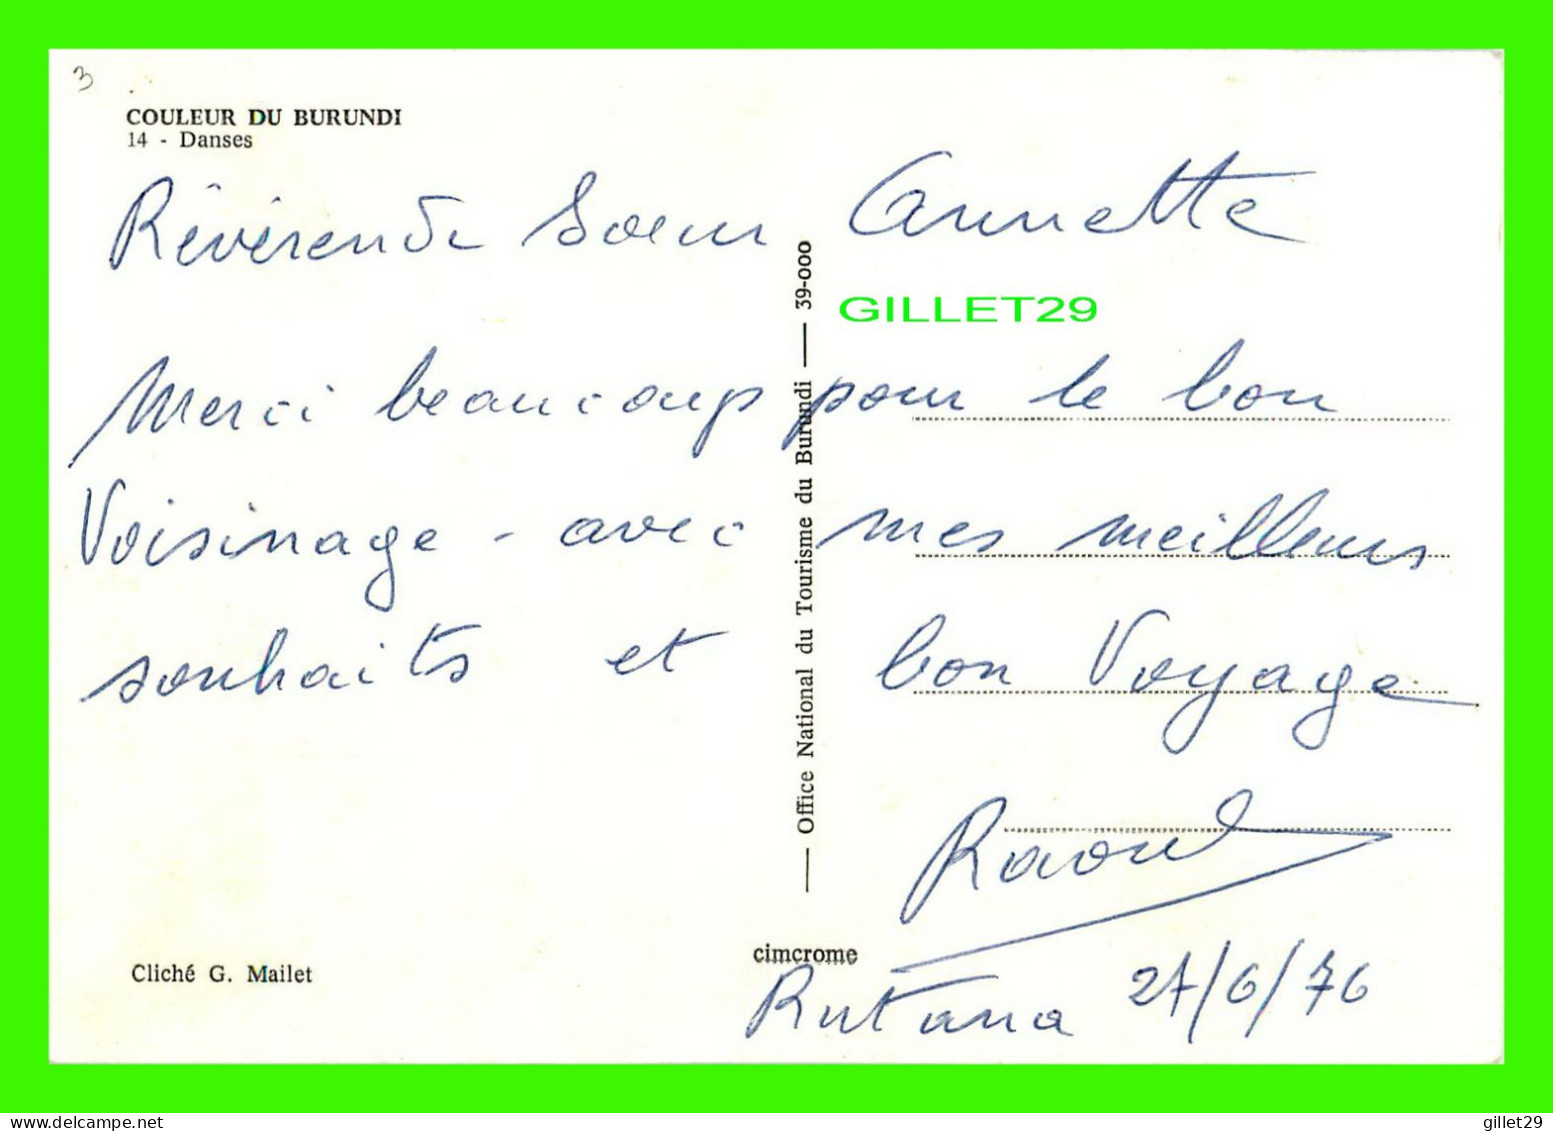 3
COULEUR DU BURUNDI
14 - Danses
Révérende Soeur Annette
GILLET29
Merci beaucoup pour le bon
Voisinage - avec mes meilleurs
souhaits et bon Voyage
Raoul
Office National du Tourisme du Burundi — 39-000
Cliché G. Mailet
cimcrome
Rutana 27/6/76
gillet29